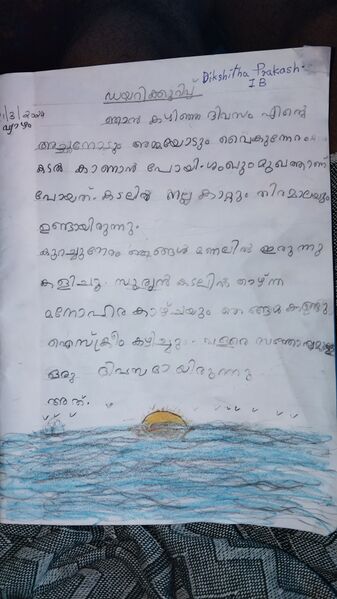 Dikshitha Prakash
I B
ഡയറിക്കുറിപ്പ്
/3/2024
വ്യാഴം
ഞാൻ കഴിഞ്ഞ ദിവസം എന്റെ
അച്ഛനോടും അമ്മയോടും വൈകുന്നേരം
കടൽ കാണാൻ പോയി. ശംഖുംമുഖത്താണ്
പോയത്. കടലിൽ നല്ല കാറ്റും തിരമാലയും
ഉണ്ടായിരുന്നു.
കുറച്ചുനേരം ഞങ്ങൾ മണലിൽ ഇരുന്നു
കളിച്ചു. സൂര്യൻ കടലിൽ താഴ്ന്ന
മനോഹര കാഴ്ചയും ഞങ്ങൾ കണ്ടു
ഐസ്ക്രീം കഴിച്ചു. വളരെ സന്തോഷമുള്ള
ഒരു ദിവസമായിരുന്നു
അത്.